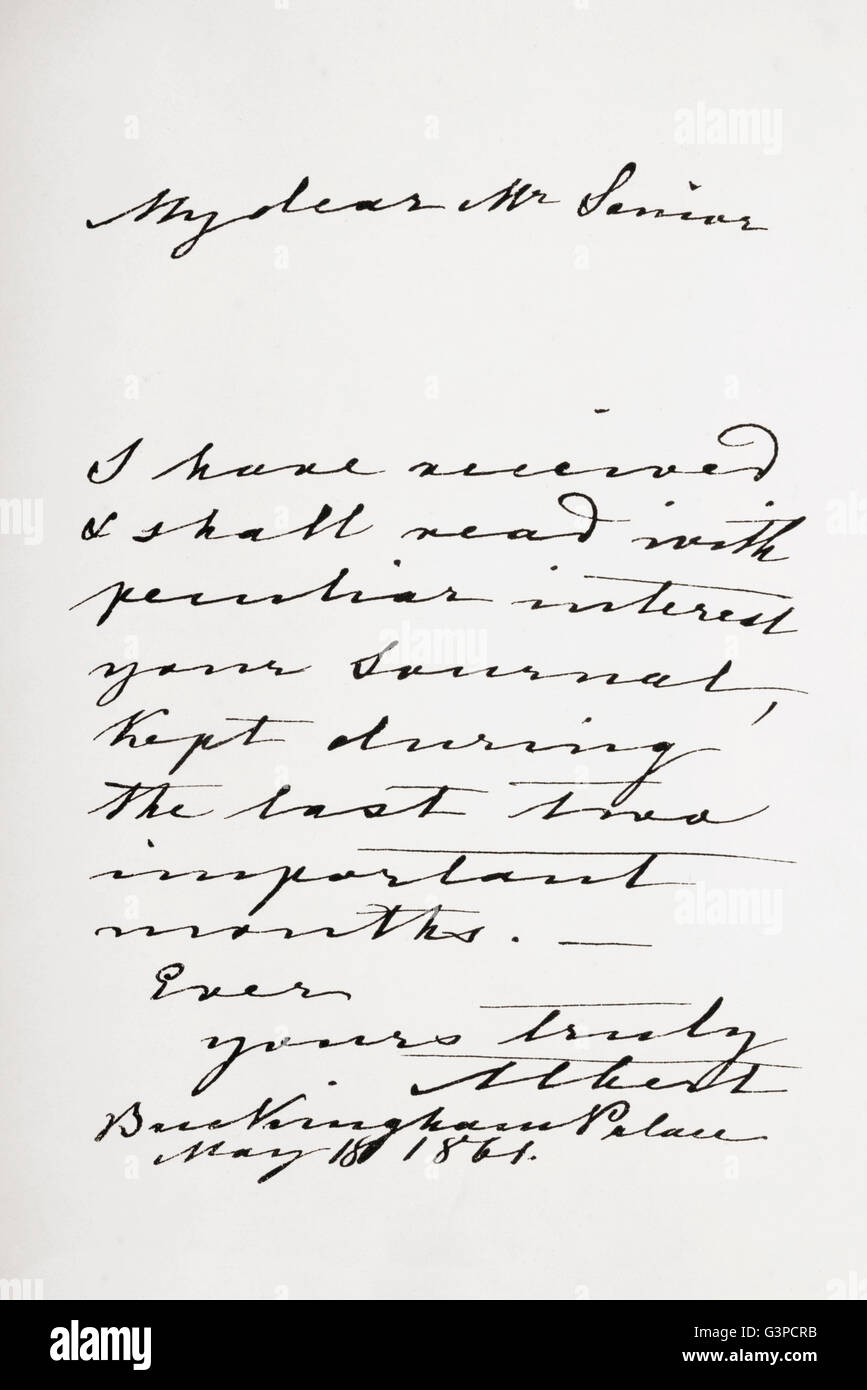 My dear Mr Senior
I have received
& shall read with
peculiar interest
your Journal,
Kept during
the last two
important
months. —
Ever
yours truly
Albert
Buckingham Palace
May 18 1861.
alamy
a
alamy stock photo
G3PCRB
www.alamy.com